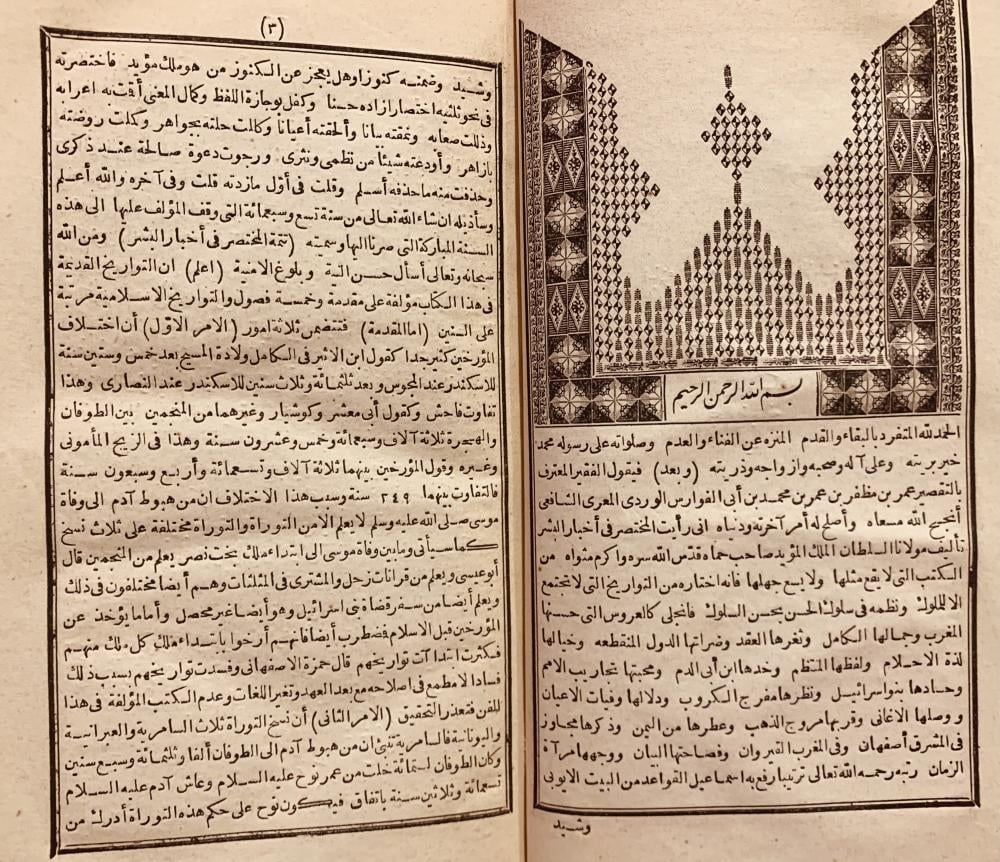 بسم الله الرحمن الرحيم
الحمد لله المتفرد بالبقاء والقدم المنزه عن الفناء والعدم وصلواته على رسوله محمد
خير بريته وعلى آله وصحبه وازواجه وذريته (وبعد) فيقول الفقير المعترف
بالتقصير عمر بن مظفر بن عمر بن محمد بن أبى الفوارس الوردى المعرى الشافعى
أنجح الله مسعاه وأصلح له أمر آخرته ودنياه انى رأيت المختصر فى أخبار البشر
تأليف مولانا السلطان الملك المؤيد صاحب حماه قدس الله سره واكرم مثواه من
الكتب التى لا يقع مثلها ولا يسع جهلها فانه اختاره من التواريخ التى لا تجتمع
الا للملوك ونظمه فى سلوك الحسن بحسن السلوك فانجلى كالعروس التى حسنها
المغرب وجمالها الكامل وثغرها العقد وضراتها الدول المنقطعه وخيالها
لذة الاحلام ولفظها المنتظم وخدها ابن أبى الدم ومحبتها تجاريب الامم
وحادها بنو اسرائيل ونظرها مفرج الكروب ودلالها وفيات الاعيان
ووصلها الاغانى وقربها مروج الذهب وعطرها من اليمن وذكرها مجاوز
فى المشرق أصفهان وفى المغرب القيروان وفصاحتها البيان ووجهها مرآة
الزمان رتبه رحمه الله تعالى ترتيبا رفع به اسماعيل القواعد من البيت الايوبى
وشيد
(٣)
وشيد وضمنه كنوزا وهل يعجز عن الكنوز من هو ملك مؤيد فاختصرته
فى نحو ثلثيه اختصارا زاده حسنا وكفل بوجازة اللفظ وكمال المعنى أقت به اعرابه
وذللت صعابه ونمقته بيانا وألحقته أعيانا وكالت حلته بجواهر وكلت روضته
بازاهر وأودعته شيئا من نظمى ونثرى ورجوت دعوة صالحة عند ذكرى
وحذفت منه ما حذفه أسلم وقلت فى أول ما زدته قلت وفى آخره والله أعلم
وسأذيله ان شاء الله تعالى من سنة تسع وسبعمائة التى وقف المؤلف عليها الى هذه
السنة المباركة التى صرنا اليها وسميته (تتمة المختصر فى أخبار البشر) ومن الله
سبحانه وتعالى أسأل حسن النية وبلوغ الامنية (اعلم) ان التواريخ القديمة
فى هذا الكتاب مؤلفة على مقدمة وخمسة فصول والتواريخ الاسلامية مرتبة
على السنين (اما المقدمة) فتتضمن ثلاثة امور (الامر الاول) أن اختلاف
المؤرخين كثير جدا كقول ابن الاثير فى الكامل ولادة المسيح بعد خمس وستين سنة
للاسكندر عند المجوس وبعد ثلثمائة وثلاث سنين للاسكندر عند النصارى وهذا
تفاوت فاحش وكقول أبى معشر وكوشيار وغيرهما من المنجمين بين الطوفان
والهجرة ثلاثة آلاف وسبعمائة وخمس وعشرون سنة وهذا فى الزيج المأمونى
وغيره وقول المؤرخين بينهما ثلاثة آلاف وتسعمائة وأربع وسبعون سنة
فالتفاوت بينهما ٢٤٩ سنة وسبب هذا الاختلاف ان من هبوط آدم الى وفاة
موسى صلى الله عليه وسلم لا يعلم الا من التوراة والتوراة مختلفة على ثلاث نسخ
كما سيأتى وما بين وفاة موسى الى ابتداء ملك بخت نصر يعلم من المنجمين قال
أبو عيسى ويعلم من قرانات زحل والمشترى فى المثلثات وهم أيضا مختلفون فى ذلك
ويعلم أيضا من سفر قضاة بنى اسرائيل وهو أيضا غير محصل وأما ما يؤخذ عن
المؤرخين قبل الاسلام فضطرب أيضا فانهم أرخوا بابتداء ملك كل ملك منهم
فكثرت ابتداآت تواريخهم قال حمزة الاصفهانى وفسدت تواريخهم بسبب ذلك
فسادا لا مطمع فى اصلاحه مع بعد العهد وتغير اللغات وعدم الكتب المؤلفة فى هذا
الفن فتعذر التحقيق (الامر الثانى) أن نسخ التوراة ثلاث السامرية والعبرانية
واليونانية فالسامرية تنبئ ان من هبوط آدم الى الطوفان ألفا وثلثمائة وسبع سنين
وكان الطوفان لستمائة خلت من عمر نوح عليه السلام وعاش آدم عليه السلام
تسعمائة وثلاثين سنة باتفاق فيكون نوح على حكم هذه التوراة أدرك من